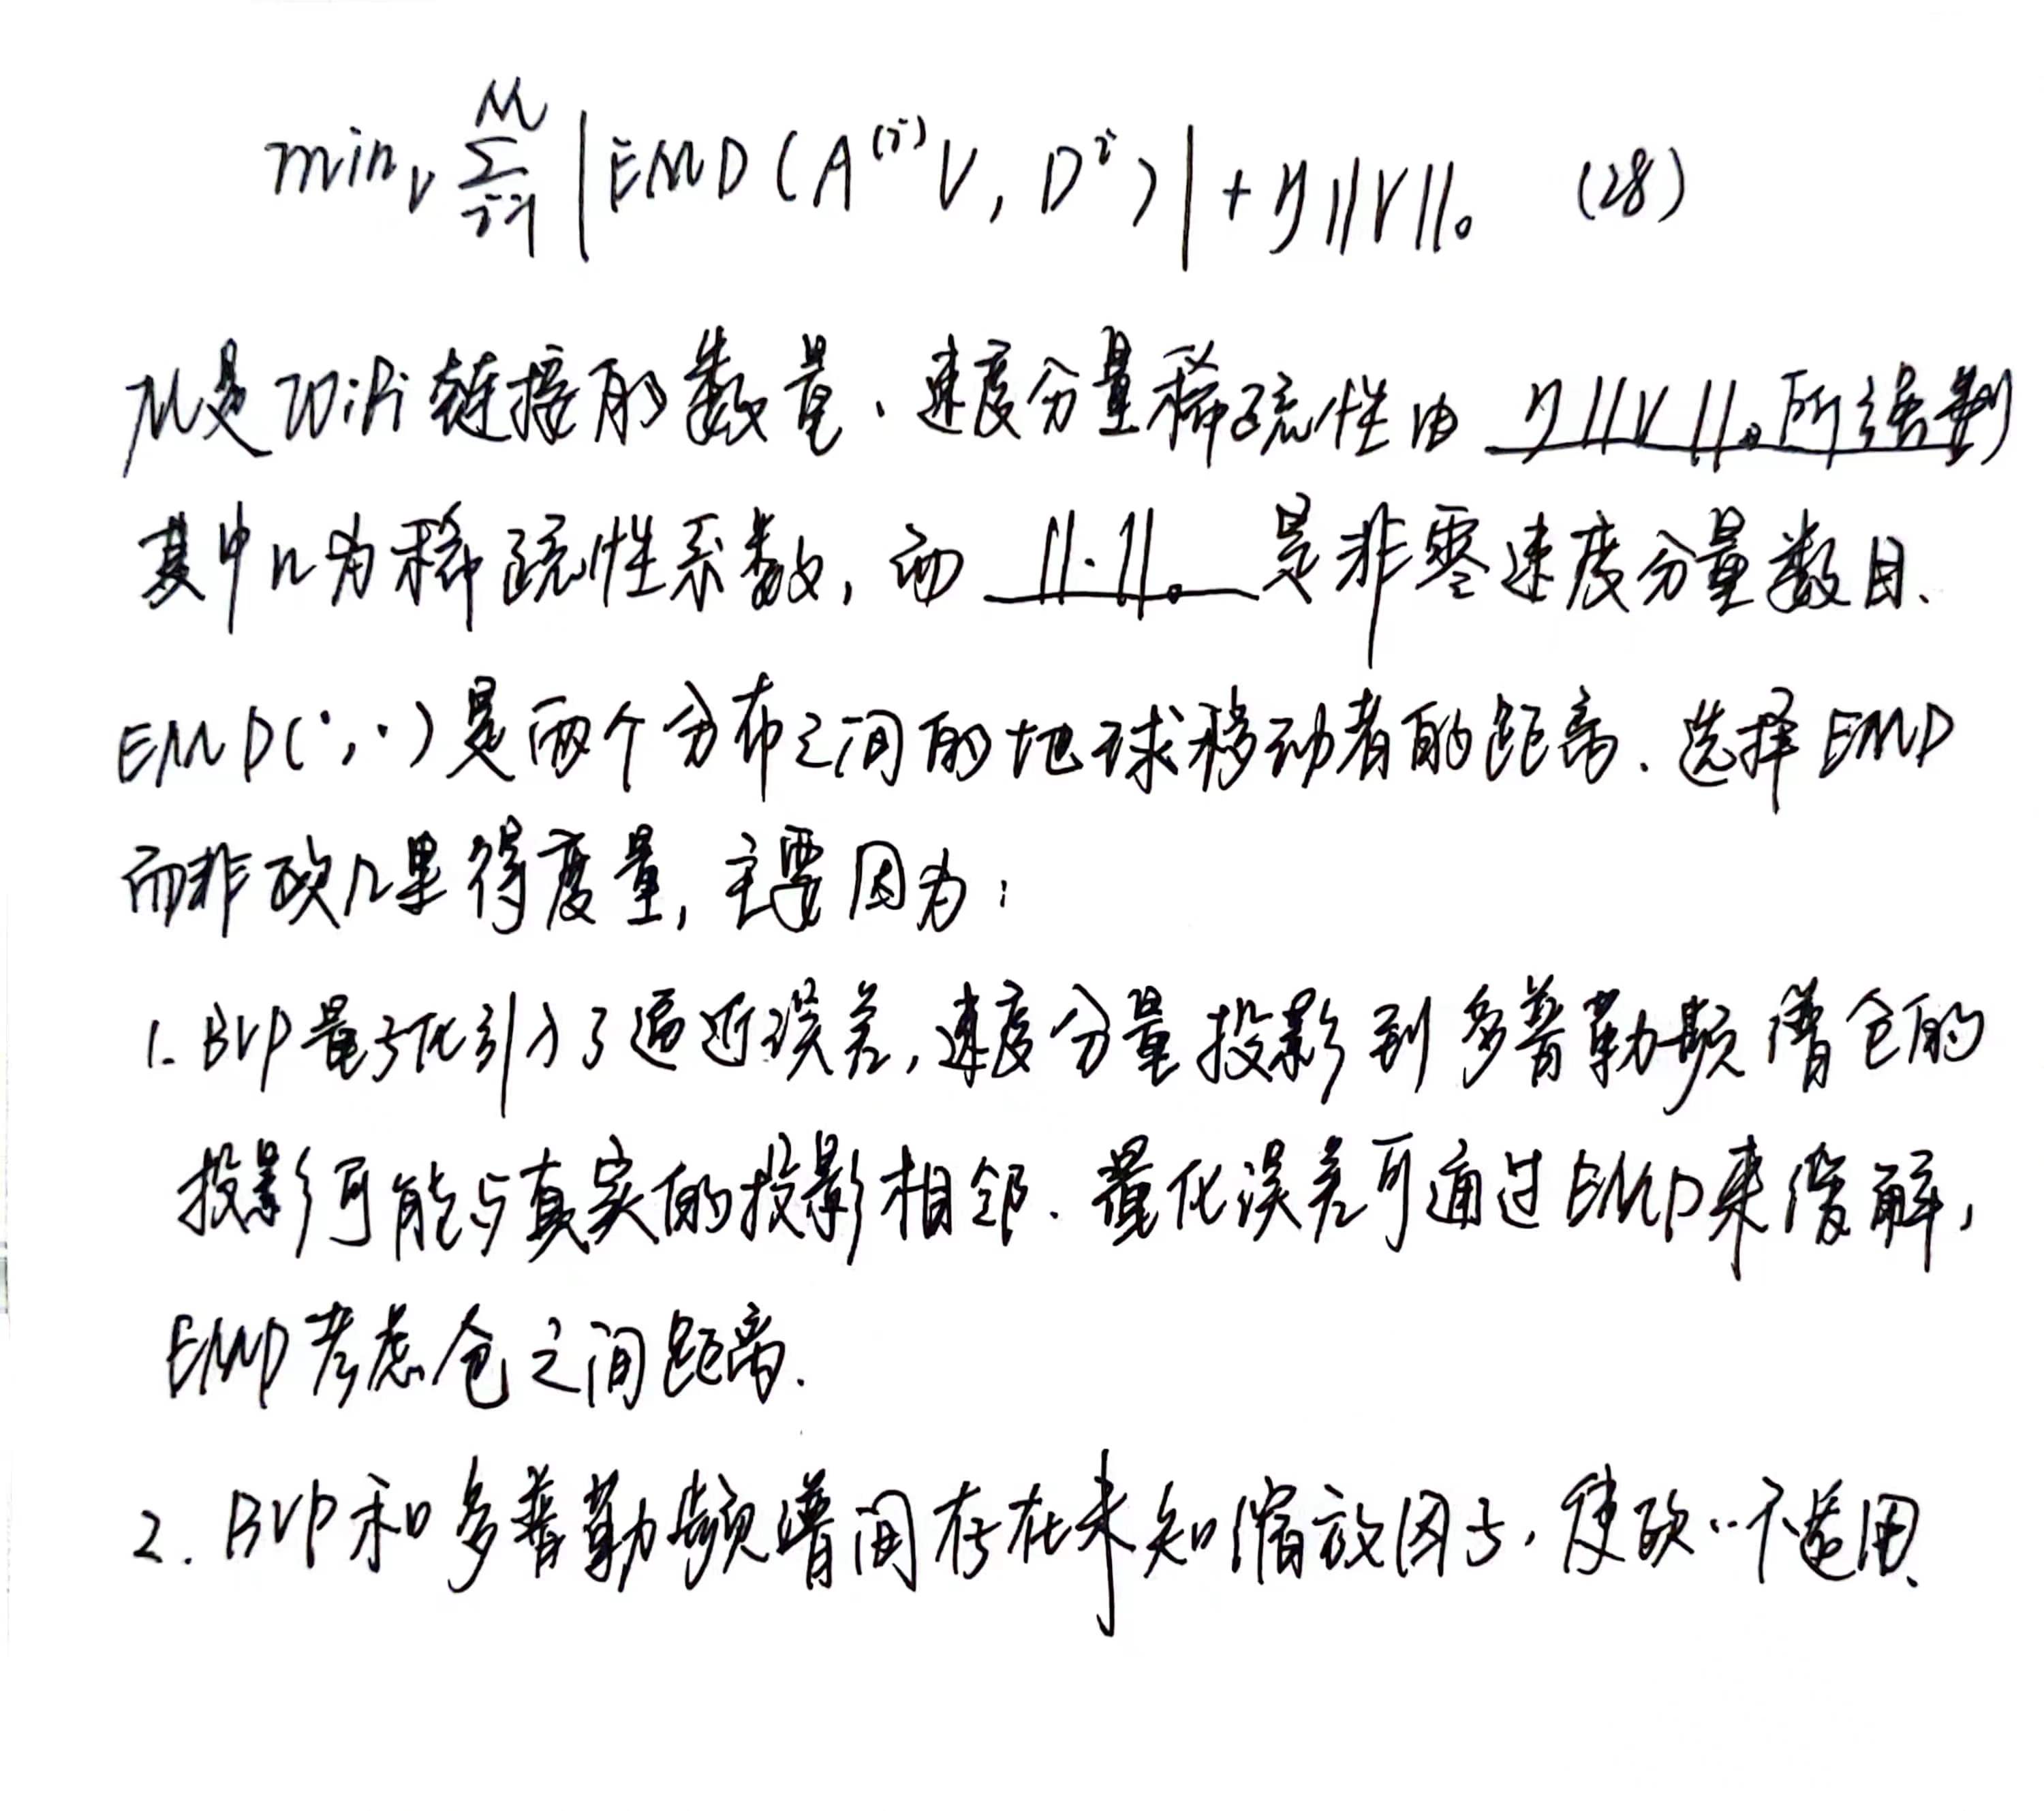 min_V Σ_{i=1}^{M} |EMD(A^{(i)}V, D^i)| + η||V||₀ (28)
M是WiFi链接的数量、速度分量稀疏性由 η||V||₀所
其中n为稀疏性系数, 而 ||·||₀ 是非零速度分量数目、
EMD(·,·)是两个分布之间的地球移动者的距离. 选择EMD
而非欧几里得度量, 主要因为:
1. BVP量子化引入了逼近误差, 速度分量投影到多普勒频谱仓的
投影可能与真实的投影相邻. 量化误差可通过EMD来缓解,
EMD考虑仓之间距离.
2. BVP和多普勒频谱间存在未知缩放因子, 使欧..不适用、